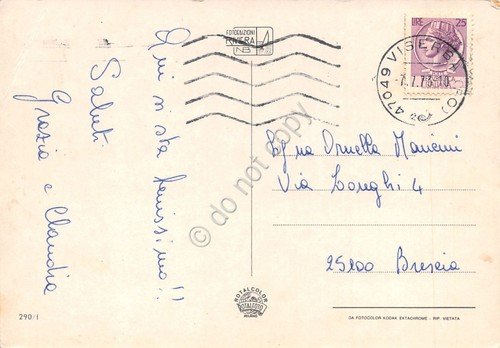 FOTOEDIZIONI
RIVIERA
NB
Qui si sta benissimo!!
Saluti
Grazia e Claudia
25
47049 VISERBA (FO)
7.7.73-10
Sig na Ornella Mancini
Via Longhi 4
25100 Brescia
© do not copy
ROTALCOLOR
ROTALFOTO
MILANO
290/I
DA FOTOCOLOR KODAK EKTACHROME - RIP. VIETATA